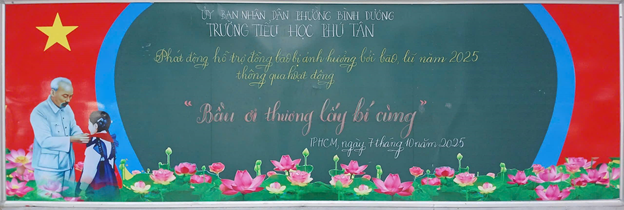 ỦY BAN NHÂN DÂN PHƯỜNG BÌNH DƯƠNG
TRƯỜNG TIỂU HỌC PHÚ TÂN
Phát động hỗ trợ đồng bào bị ảnh hưởng bởi bão, lũ năm 2025
thông qua hoạt động
"Bầu ơi thương lấy bí cùng"
TPHCM, ngày 7 tháng 10 năm 2025